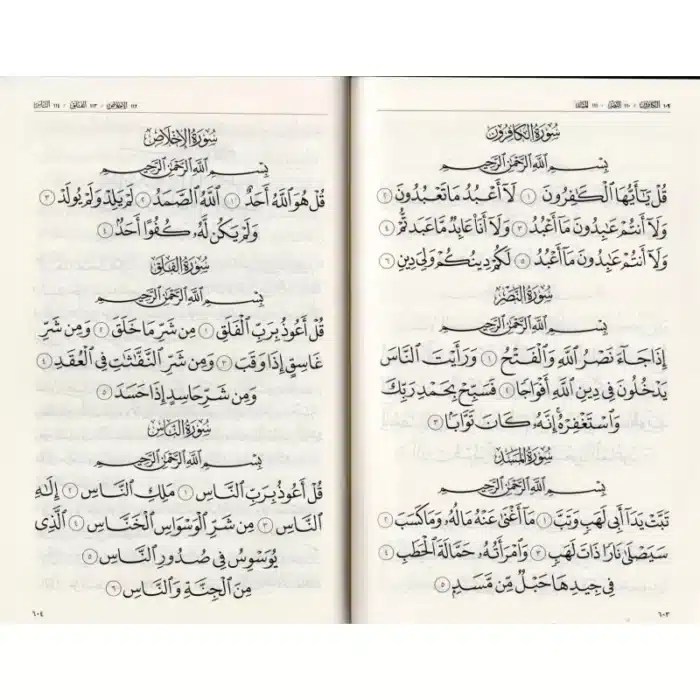 ١٠٩ الكافرون / ١١٠ النصر / ١١١ المسد
سُورَةُ الكَافِرُونَ
بِسْمِ ٱللَّهِ ٱلرَّحْمَٰنِ ٱلرَّحِيمِ
قُلْ يَٰٓأَيُّهَا ٱلْكَٰفِرُونَ ١ لَآ أَعْبُدُ مَا تَعْبُدُونَ ٢
وَلَآ أَنتُمْ عَٰبِدُونَ مَآ أَعْبُدُ ٣ وَلَآ أَنَا۠ عَابِدٌ مَّا عَبَدتُّمْ ٤
وَلَآ أَنتُمْ عَٰبِدُونَ مَآ أَعْبُدُ ٥ لَكُمْ دِينُكُمْ وَلِىَ دِينِ ٦
سُورَةُ النَّصْرِ
بِسْمِ ٱللَّهِ ٱلرَّحْمَٰنِ ٱلرَّحِيمِ
إِذَا جَآءَ نَصْرُ ٱللَّهِ وَٱلْفَتْحُ ١ وَرَأَيْتَ ٱلنَّاسَ
يَدْخُلُونَ فِى دِينِ ٱللَّهِ أَفْوَاجًا ٢ فَسَبِّحْ بِحَمْدِ رَبِّكَ
وَٱسْتَغْفِرْهُ إِنَّهُۥ كَانَ تَوَّابًۢا ٣
سُورَةُ المَسَدِ
بِسْمِ ٱللَّهِ ٱلرَّحْمَٰنِ ٱلرَّحِيمِ
تَبَّتْ يَدَآ أَبِى لَهَبٍ وَتَبَّ ١ مَآ أَغْنَىٰ عَنْهُ مَالُهُۥ وَمَا كَسَبَ ٢
سَيَصْلَىٰ نَارًا ذَاتَ لَهَبٍ ٣ وَٱمْرَأَتُهُۥ حَمَّالَةَ ٱلْحَطَبِ ٤
فِى جِيدِهَا حَبْلٌ مِّن مَّسَدٍۭ ٥
٦٠٣
١١٢ الإخلاص / ١١٣ الفلق / ١١٤ الناس
سُورَةُ الإِخْلَاصِ
بِسْمِ ٱللَّهِ ٱلرَّحْمَٰنِ ٱلرَّحِيمِ
قُلْ هُوَ ٱللَّهُ أَحَدٌ ١ ٱللَّهُ ٱلصَّمَدُ ٢ لَمْ يَلِدْ وَلَمْ يُولَدْ ٣
وَلَمْ يَكُن لَّهُۥ كُفُوًا أَحَدٌۢ ٤
سُورَةُ الفَلَقِ
بِسْمِ ٱللَّهِ ٱلرَّحْمَٰنِ ٱلرَّحِيمِ
قُلْ أَعُوذُ بِرَبِّ ٱلْفَلَقِ ١ مِن شَرِّ مَا خَلَقَ ٢ وَمِن شَرِّ
غَاسِقٍ إِذَا وَقَبَ ٣ وَمِن شَرِّ ٱلنَّفَّٰثَٰتِ فِى ٱلْعُقَدِ ٤
وَمِن شَرِّ حَاسِدٍ إِذَا حَسَدَ ٥
سُورَةُ النَّاسِ
بِسْمِ ٱللَّهِ ٱلرَّحْمَٰنِ ٱلرَّحِيمِ
قُلْ أَعُوذُ بِرَبِّ ٱلنَّاسِ ١ مَلِكِ ٱلنَّاسِ ٢ إِلَٰهِ
ٱلنَّاسِ ٣ مِن شَرِّ ٱلْوَسْوَاسِ ٱلْخَنَّاسِ ٤ ٱلَّذِى
يُوَسْوِسُ فِى صُدُورِ ٱلنَّاسِ ٥
مِنَ ٱلْجِنَّةِ وَٱلنَّاسِ ٦
٦٠٤